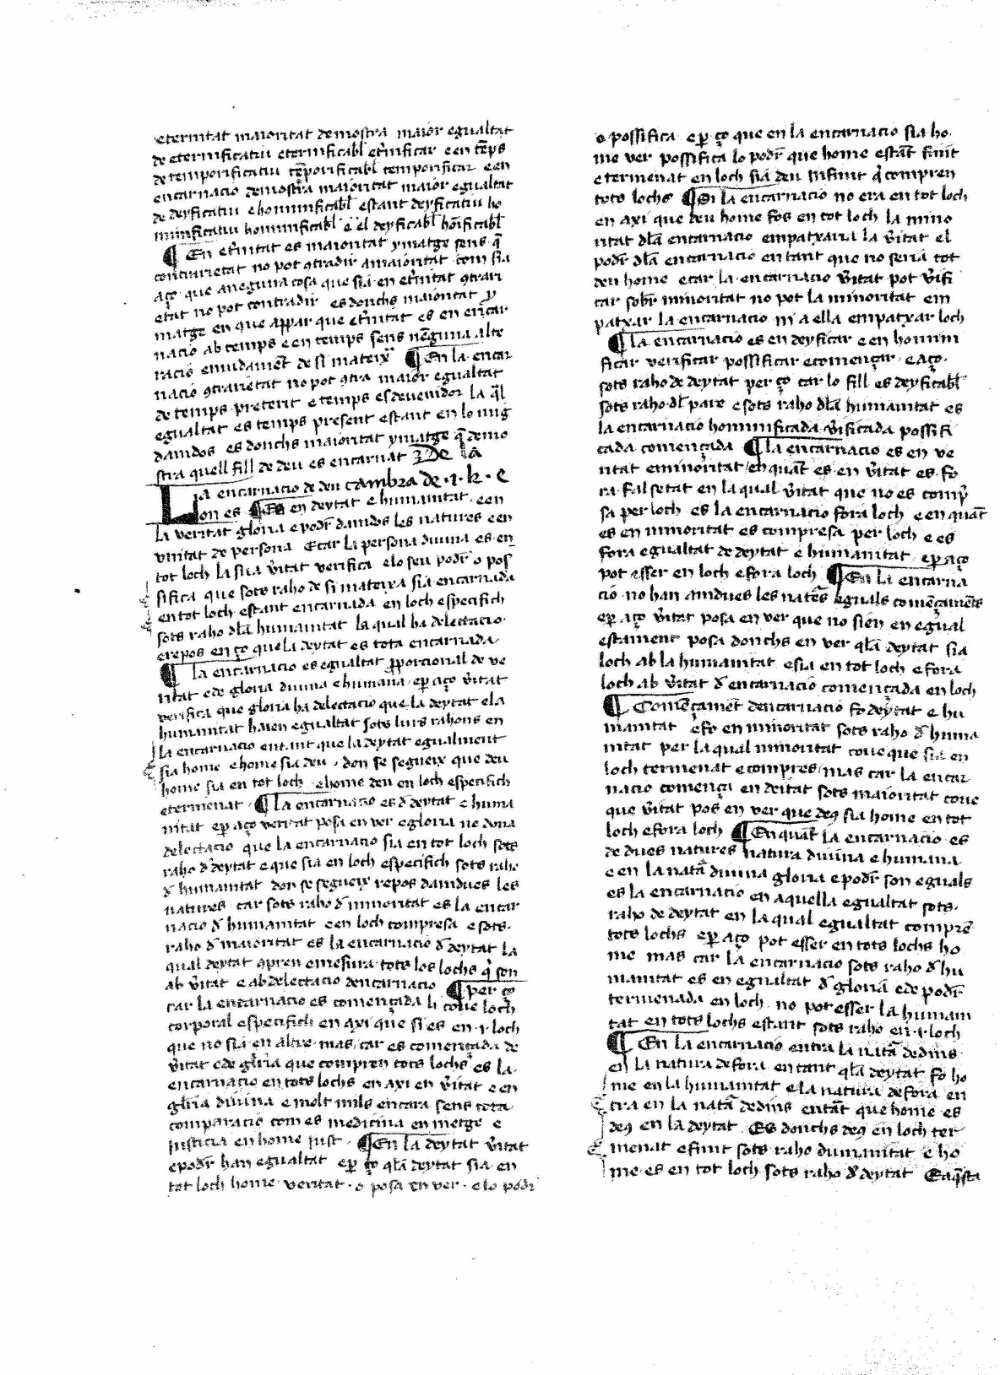 eternitat maioritat demostra maior egualtat
de eternificatiu eternificabl et̄nificar e en tēps
de temporificatiu tēporificabl temporificar e en
encarnacio demostra maioritat maior egualtat
de deyficatiu e hominificabl estant deyficatiu ho
minificatiu hominificabl e el deyficabl hōificabl
¶ En et̄nitat es maioritat ymatge sens q̄
contrarietat no pot ꝯtradir a maioritat com sia
aço que a neguna cosa que sia en et̄nitat ꝯtrari
etat no pot contradir es donchs maioritat y
matge en que appar que et̄nitat es en en̄car
nacio ab temps e en temps sens nēguna alte
racio e mudament de si mateix ¶ En la encar
nacio ꝯtrarietat no pot ꝯtra maior egualtat
de temps preterit e temps esdevenidor la q̄l
egualtat es temps present estant en lo mig
damdos es donchs maioritat ymatge q̄ demo
stra quell fill de deu es encarnat De la
La encarnacio de deu cambra de .i. k. e
on es ¶ Es en deytat e humanitat e en
la veritat gloria e podr̄ damdos les natures e en
unitat de persona E car la persona divina es en
tot loch la sua v̄itat verifica e lo seu podr̄ o pos
sifica que sots raho de si mateixa sia encarnada
en tot loch estant encarnada en loch especifich
sots raho dl̄a humanitat la qual ha delectacio
e repos en ço que la deytat es tota encarnada
¶ la encarnacio es egualtat proporcional de ve
ritat e de gloria divina e humana e per aço v̄itat
verifica que gloria ha delectacio que la deytat e la
humanitat haien egualtat sots lurs rahons en
la encarnacio en tant que la deytat egualment
sia home e home sia deu don se segueix que deu
home sia en tot loch e home deu en loch especifich
e termenat ¶ La encarnacio es d deytat e huma
nitat e per aço veritat posa en ver e gloria no dona
delectacio que la encarnacio sia en tot loch sots
raho d deytat e que sia en loch especifich sots raho
d humanitat don se segueix repos damdues les
natures car sots raho d minoritat es la encar
nacio d humanitat e en loch compresa e sots
raho d maioritat es la encarnacio d deytat la
qual deytat ꝯpren e mesura tots los lochs q̄ son
ab v̄itat e ab delectacio dencarnacio ¶ per ço
car la encarnacio es començada li cove loch
corporal especifich en axi que si es en .i. loch
que no sia en altre mas car es començada de
v̄itat e de gl̄ia que compren tots lochs es la
encarnacio en tots lochs en axi en v̄itat e en
gl̄ia divina e molt mils encara sens tota
comparacio com es medicina en metge e
justicia en home just ¶ En la deytat v̄itat
e podr̄ han egualtat e per ço q̄ la deytat sia en
tot loch home veritat o posa en ver e lo podr̄
o possifica e per ço que en la encarnacio sia ho
me ver possifica lo podr̄ que home estant finit
e termenat en loch sia deu infinit q̄ compren
tots lochs ¶ Si la encarnacio no era en tot loch
en axi que deu home fos en tot loch la mino
ritat dl̄a encarnacio empatxaria la v̄itat e l
podr̄ dl̄a encarnacio en tant que no seria tot
deu home e car la encarnacio v̄itat pot v̄ifi
car sobr̄ minoritat no pot la minoritat em
patxar la encarnacio ni a ella empatxar loch
¶ La encarnacio es en deyficar e en homini
ficar verificar possificar e començar e aço
sots raho de deytat per ço car lo fill es deyficabl
sots raho dl̄ pare e sots raho dl̄a humanitat es
la encarnacio hominificada v̄ificada possifi
cada començada ¶ la encarnacio es en ve
ritat e minoritat en quant es en v̄itat es fo
ra falsetat en la qual v̄itat que no es compr̄
sa per loch es la encarnacio fora loch e en quant
es en minoritat es compresa per loch e es
fora egualtat de deytat e humanitat e per aço
pot esser en loch e fora loch ¶ En la encarna
cio no han amdues les nat̄es eguals començaments
e per aço v̄itat posa en ver que no sien en egual
estament posa donchs en ver q̄ la deytat sia
loch ab la humanitat e sia en tot loch e fora
loch ab v̄itat d encarnacio començada en loch
¶ Començament dencarnacio fo deytat e hu
manitat e fo en minoritat sots raho d huma
nitat per la qual minoritat cove que sia en
loch termenat e compres mas car la encar
nacio comença en deitat sots maioritat cove
que v̄itat pos en ver que deꝯ sia home en tot
loch e fora loch ¶ En quant la encarnacio es
de dues natures natura divina e humana
e en la nata divina gloria e podr̄ son eguals
es la encarnacio en aquella egualtat sots
raho de deytat en la qual egualtat comprē
tots lochs e per aço pot esser en tots lochs ho
me mas car la encarnacio sots raho d hu
manitat es en egualtat d gloria e de podr̄
termenada en loch no pot esser la humani
tat en tots lochs estant sots raho en .i. loch
¶ En la encarnacio entra la nata dedins
en la natura defora en tant q̄ la deytat fo ho
me en la humanitat e la natura defora en
tra en la nata dedins en tant que home es
deꝯ en la deytat Es donchs deꝯ en loch ter
menat e finit sots raho dumanitat e ho
me es en tot loch sots raho d deytat E aq̄sta